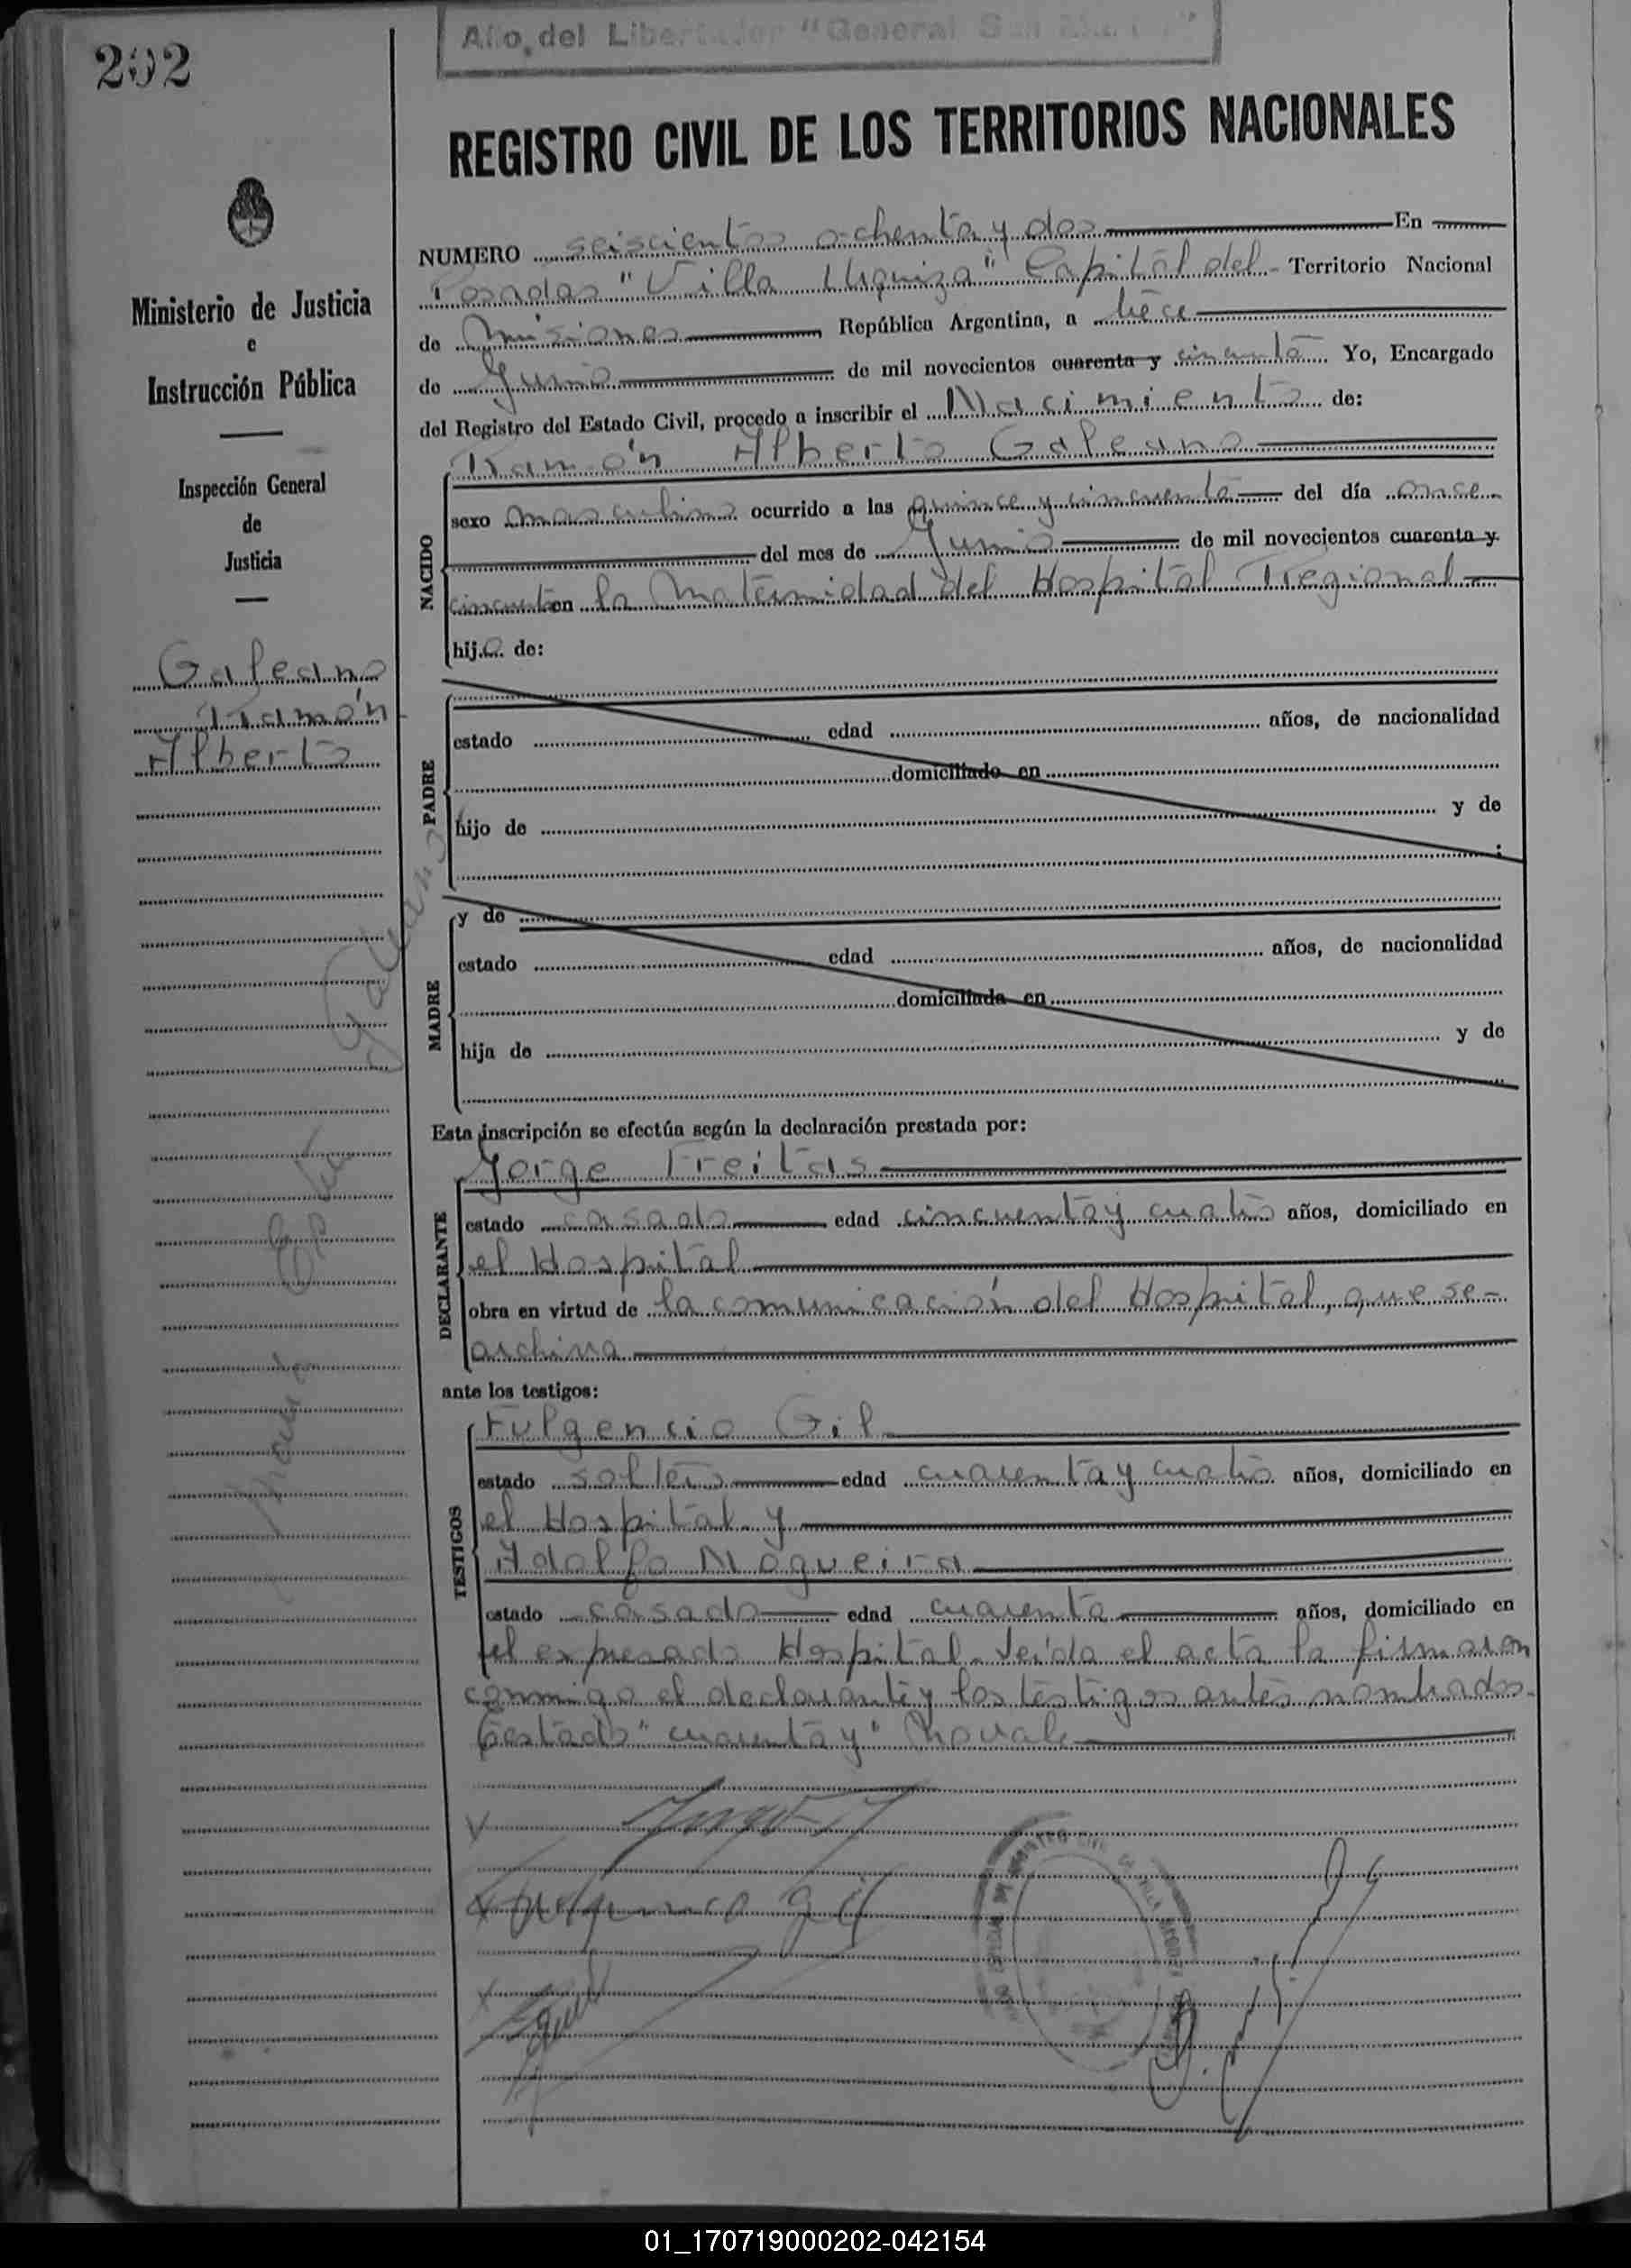 202
Año del Libertador "General San Martín"
REGISTRO CIVIL DE LOS TERRITORIOS NACIONALES
Ministerio de Justicia
e
Instrucción Pública
Inspección General
de
Justicia
Galeano
Ramón
Alberto
NUMERO seiscientos ochenta y dos En
Posadas "Villa Urquiza" Capital del Territorio Nacional
de Misiones, República Argentina, a trece
de Junio de mil novecientos cuarenta y cincuenta Yo, Encargado
del Registro del Estado Civil, procedo a inscribir el Nacimiento de:
NACIDO
Ramón Alberto Galeano
sexo masculino ocurrido a las quince y cincuenta del día once
del mes de Junio de mil novecientos cuarenta y
cincuenta en la Maternidad del Hospital Regional
hijo de:
PADRE
estado edad años, de nacionalidad
domiciliado en
hijo de y de
MADRE
y de
estado edad años, de nacionalidad
domiciliada en
hija de y de
Esta inscripción se efectúa según la declaración prestada por:
DECLARANTE
Jorge Freitas
estado casado edad cincuenta y cuatro años, domiciliado en
el Hospital
obra en virtud de la comunicación del Hospital, que se-
archiva
ante los testigos:
TESTIGOS
Fulgencio Gil
estado soltero edad cuarenta y cuatro años, domiciliado en
el Hospital y
Adolfo Nogueira
estado casado edad cuarenta años, domiciliado en
el expresado Hospital. Leída el acta la firmaron
conmigo el declarante y los testigos antes nombrados.
Testado "cuarenta y" No vale
Fulgencio Gil
01_170719000202-042154